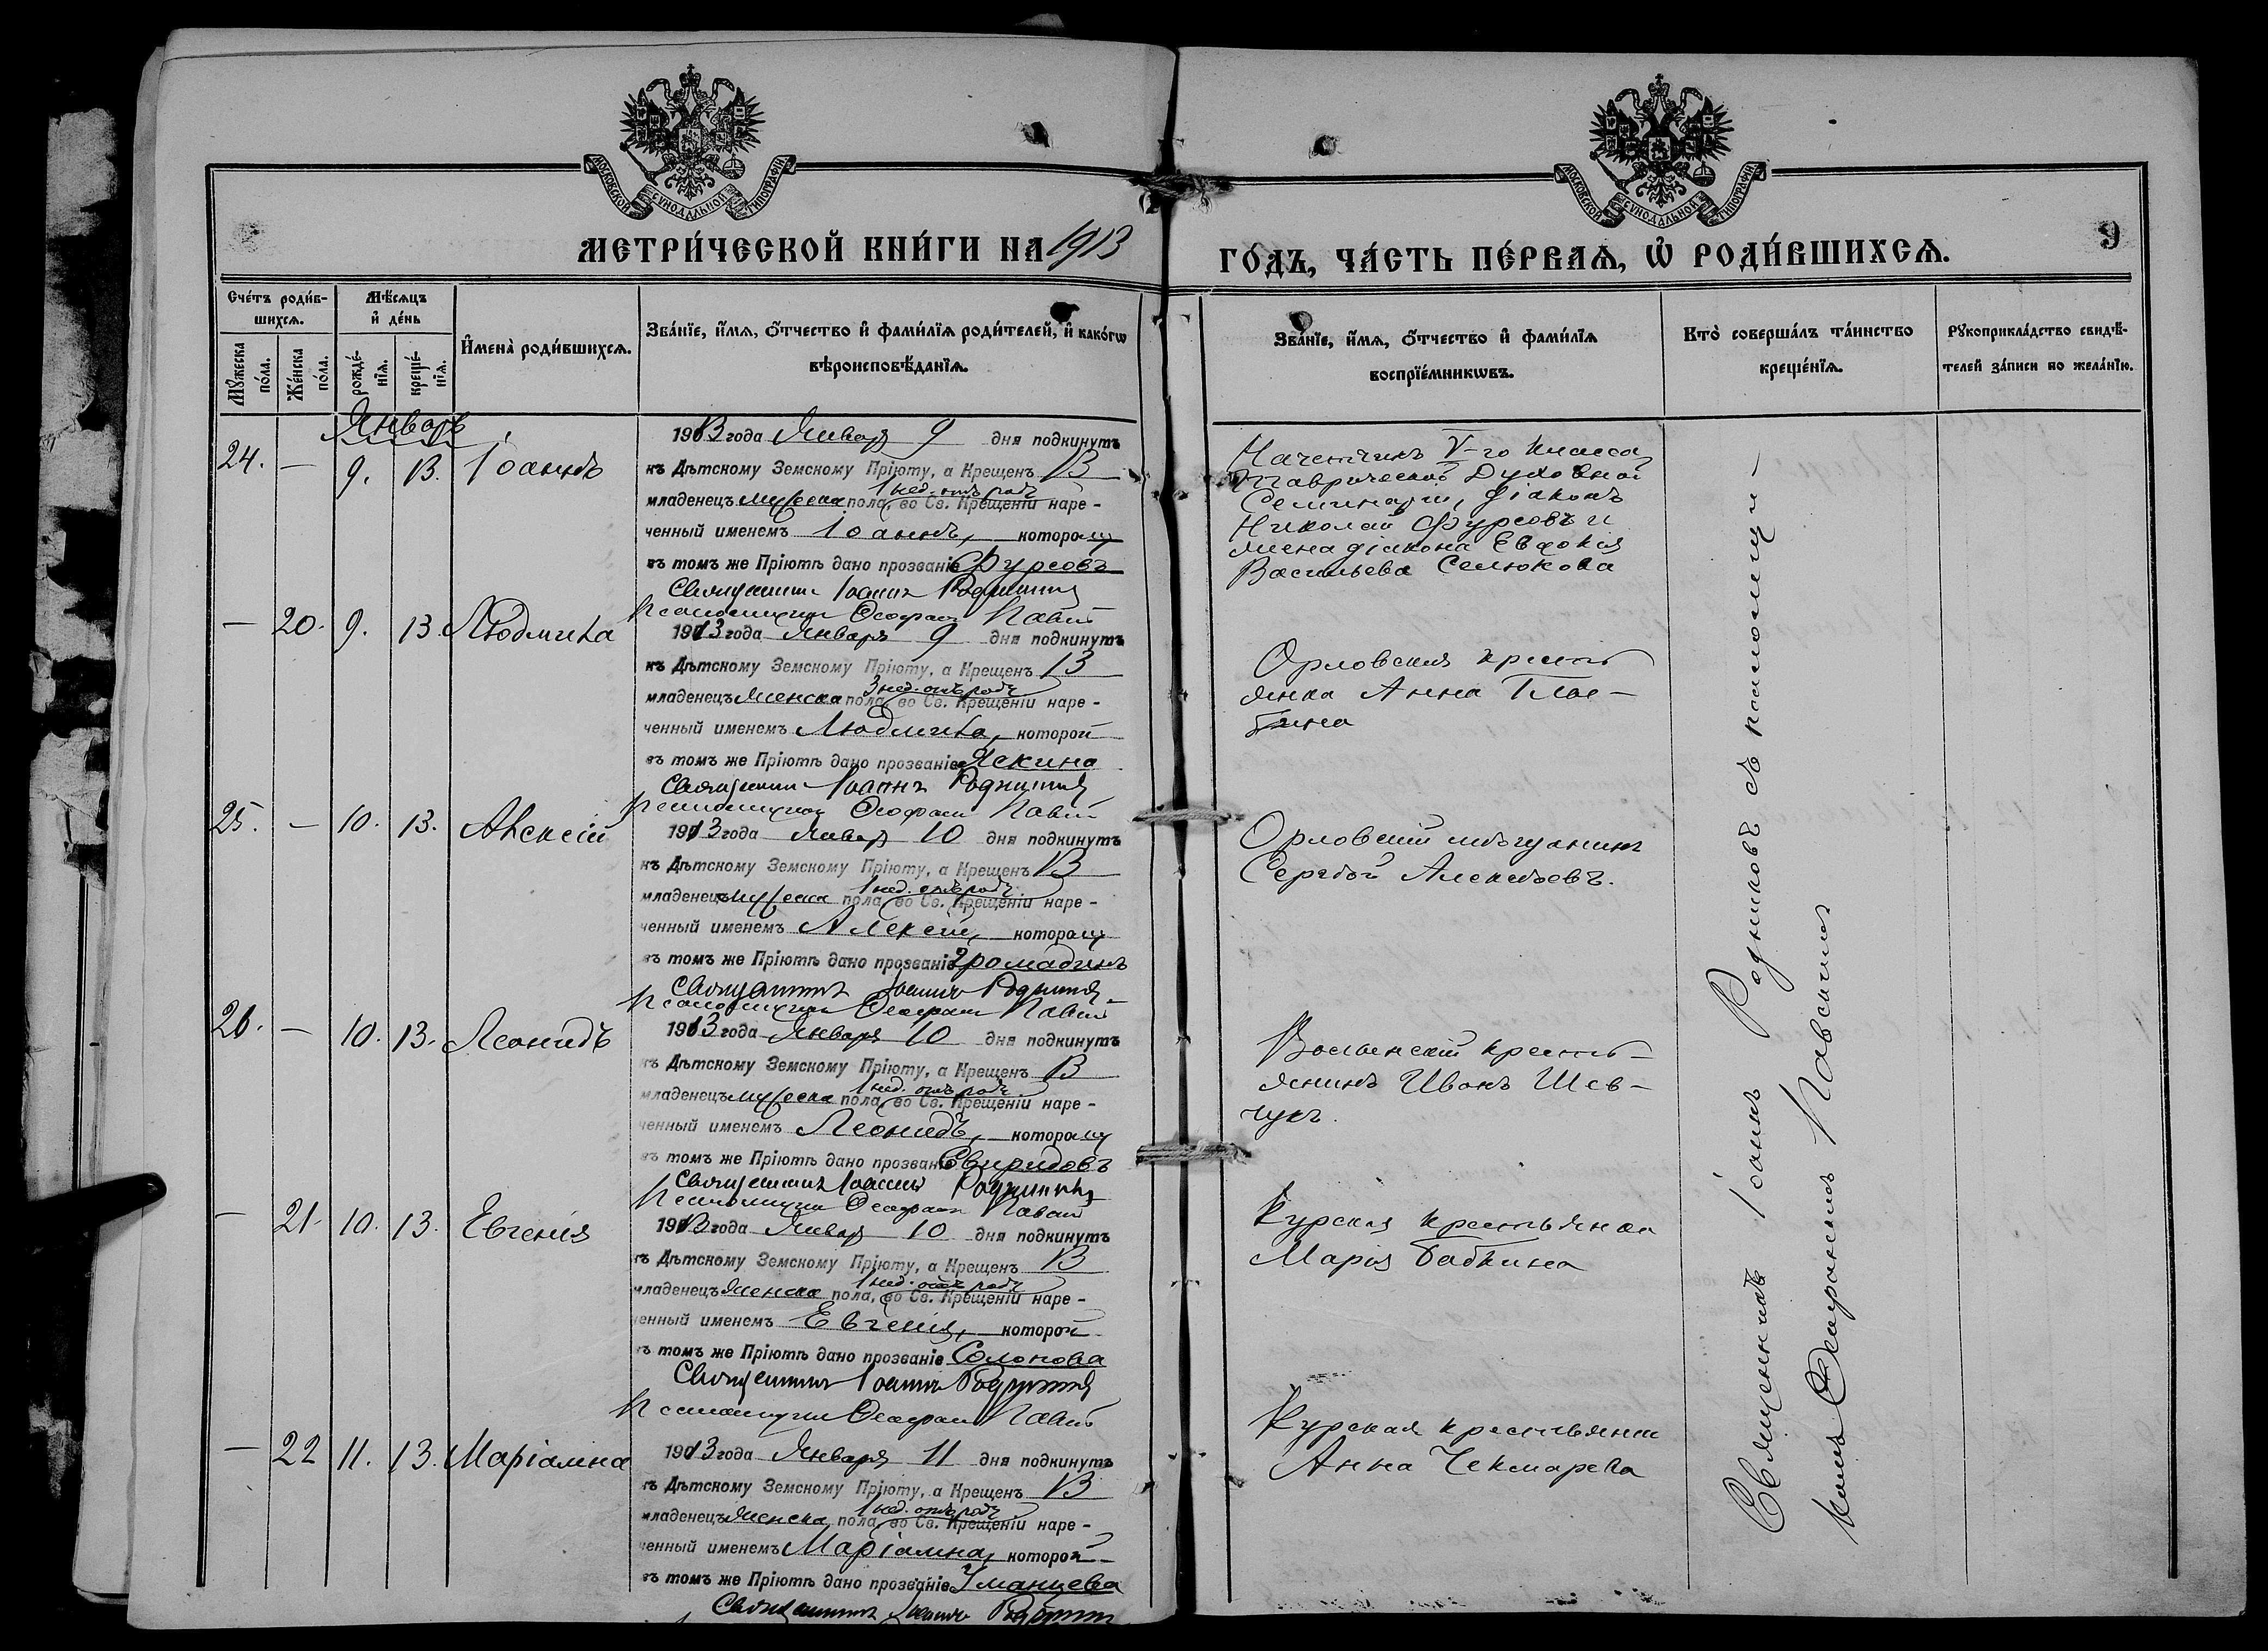 МОСКОВСКОЙ СѴНОДАЛЬНОЙ ТИПОГРАФІИ
МЕТРИ́ЧЕСКОЙ КНИ́ГИ НА 1913
Сче́тъ роди́в-
шихсѧ.
Мꙋ́жеска
по́ла.
Же́нска
по́ла.
Мѣ́сѧцъ
и҆ де́нь
рожде́-
нїѧ.
креще́-
нїѧ.
И҆мена̀ роди́вшихсѧ.
Зва́нїе, и҆́мѧ, ѻ҆́тчество и҆ фами́лїѧ роди́телей, и҆ како́гѡ
вѣроисповѣ́данїѧ.
Январь
24. — 9. 13. Іоаннъ
1913 года Января 9 дня подкинутъ
къ Дѣтскому Земскому Пріюту, а Крещенъ 13
1 нед. отъ род.
младенецъ мужеска пола, во Св. Крещеніи наре-
ченный именемъ Іоаннъ, которому
въ томъ же Пріютѣ дано прозваніе Фурсовъ
Священникъ Іоаннъ Родниковъ
Псаломщикъ Феофанъ
— 20. 9. 13. Людмила
1913 года Января 9 дня подкинутъ
къ Дѣтскому Земскому Пріюту, а Крещенъ 13
3 нед. отъ род.
младенецъ женска пола, во Св. Крещеніи наре-
ченный именемъ Людмила, которой
въ томъ же Пріютѣ дано прозваніе Яскина
Священникъ Іоаннъ Родниковъ
Псаломщикъ Феофанъ
25. — 10. 13. Алексій
1913 года Января 10 дня подкинутъ
къ Дѣтскому Земскому Пріюту, а Крещенъ 13
1 нед. отъ род.
младенецъ мужеска пола, во Св. Крещеніи наре-
ченный именемъ Алексій, которому
въ томъ же Пріютѣ дано прозваніе Громадинъ
Священникъ Іоаннъ Родниковъ
Псаломщикъ Феофанъ
26. — 10. 13. Леонидъ
1913 года Января 10 дня подкинутъ
къ Дѣтскому Земскому Пріюту, а Крещенъ 13
1 нед. отъ род.
младенецъ мужеска пола, во Св. Крещеніи наре-
ченный именемъ Леонидъ, которому
въ томъ же Пріютѣ дано прозваніе Свиридовъ
Священникъ Іоаннъ Родниковъ
Псаломщикъ Феофанъ
— 21. 10. 13. Евгенія
1913 года Января 10 дня подкинутъ
къ Дѣтскому Земскому Пріюту, а Крещенъ 13
1 нед. отъ род.
младенецъ женска пола, во Св. Крещеніи наре-
ченный именемъ Евгенія, которой
въ томъ же Пріютѣ дано прозваніе Солонова
Священникъ Іоаннъ Родниковъ
Псаломщикъ Феофанъ
— 22 11. 13. Маріамна
1913 года Января 11 дня подкинутъ
къ Дѣтскому Земскому Пріюту, а Крещенъ 13
1 нед. отъ род.
младенецъ женска пола, во Св. Крещеніи наре-
ченный именемъ Маріамна, которой
въ томъ же Пріютѣ дано прозваніе Уманцева
Священникъ Іоаннъ Родниковъ
МОСКОВСКОЙ СѴНОДАЛЬНОЙ ТИПОГРАФІИ
9
ГО́ДЪ, ЧА́СТЬ ПЕ́РВАѦ, Ѡ҆ РОДИ́ВШИХСѦ.
Зва́нїе, и҆́мѧ, ѻ҆́тчество и҆ фами́лїѧ
воспрїе́мникѡвъ.
Кто̀ соверша́лъ та́инство
креще́нїѧ.
Рꙋкоприкла́дство свидѣ́-
телей за́писи по жела́нїю.
V-го класса
Таврической Духовной
Семинаріи, діаконъ
Николай Фурсовъ и
жена діакона Евдокія
Васильева Селюкова
Орловская кресть
янка Анна
Орловскій мѣщанинъ
Сергѣй Алексѣевъ.
Волынскій кресть-
янинъ Иванъ Шев-
чукъ.
Курская крестьянка
Марія Бабкина
Курская крестьянка
Анна Чекмарева
Священникъ Іоаннъ Родниковъ съ псаломщи-
комъ Феофаномъ